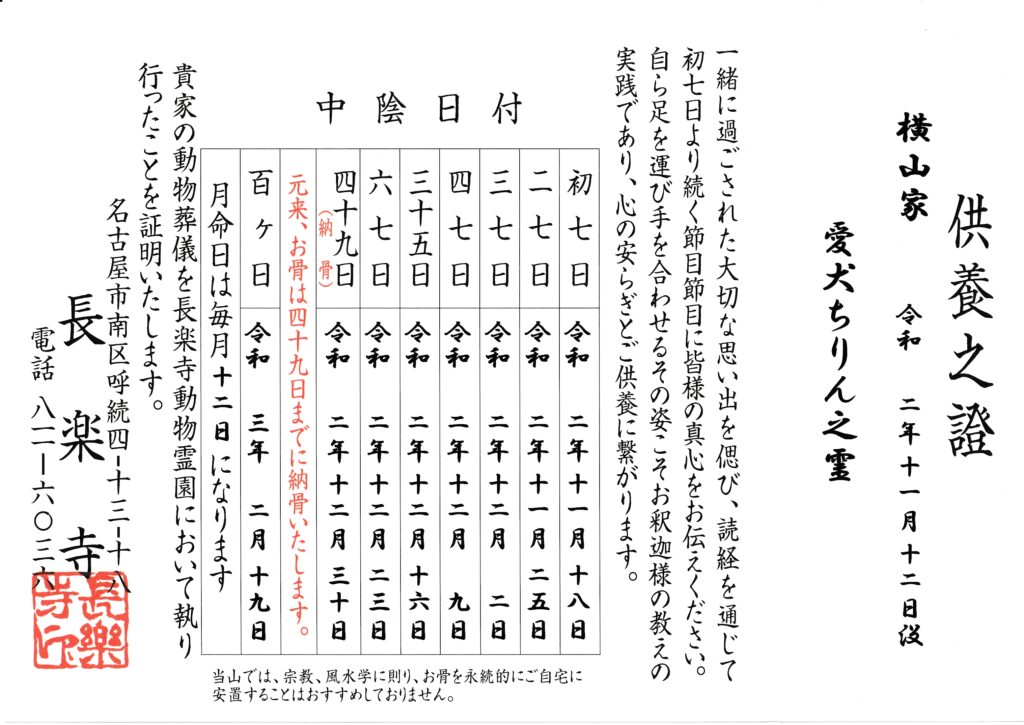 供養之證
横山家　令和　二年十一月十二日没
愛犬ちりん之霊
一緒に過ごされた大切な思い出を偲び、読経を通じて
初七日より続く節目節目に皆様の真心をお伝えください。
自ら足を運び手を合わせるその姿こそお釈迦様の教えの
実践であり、心の安らぎとご供養に繋がります。
中陰日付
初七日　令和　二年十一月十八日
二七日　令和　二年十一月二五日
三七日　令和　二年十二月　二日
四七日　令和　二年十二月　九日
三十五日　令和　二年十二月十六日
六七日　令和　二年十二月二三日
四十九日　令和　二年十二月三十日
（納骨）
元来、お骨は四十九日までに納骨いたします。
百ヶ日　令和　三年　二月十九日
月命日は毎月十二日になります
当山では、宗教、風水学に則り、お骨を永続的にご自宅に
安置することはおすすめしておりません。
貴家の動物葬儀を長楽寺動物霊園において執り
行ったことを証明いたします。
名古屋市南区呼続四-十三-十八
長楽寺
電話 八一一-六〇三六
長樂
寺印